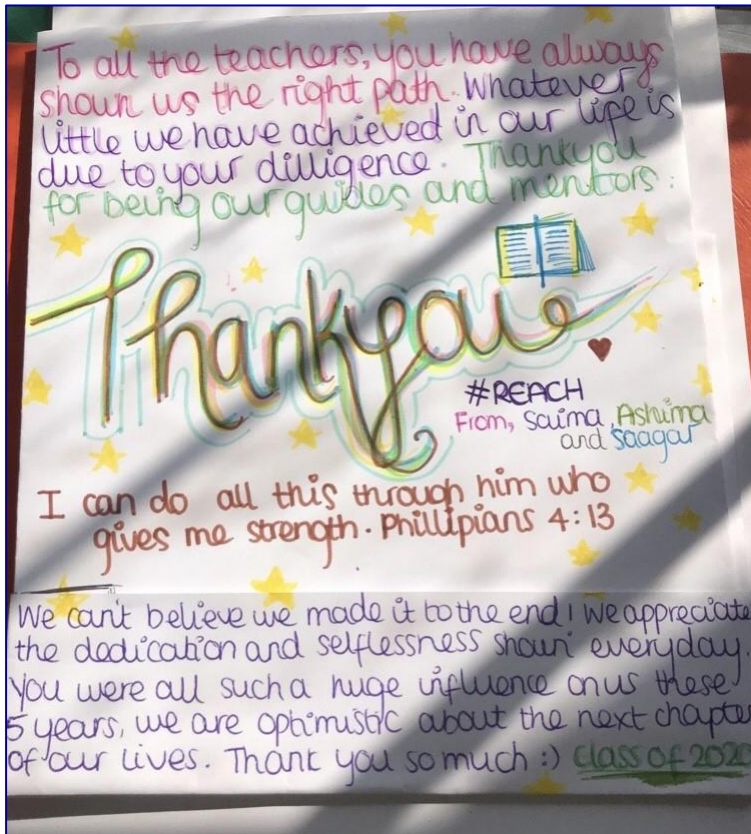 To all the teachers, you have always
shown us the right path. Whatever
little we have achieved in our life is
due to your dilligence. Thankyou
for being our guides and mentors.
Thankyou
#REACH
From, Saima, Ashima
and Saagar
I can do all this through him who
gives me strength. Phillipians 4:13
We can't believe we made it to the end! We appreciate
the dedication and selflessness shown everyday.
You were all such a huge influence on us these
5 years, we are optimistic about the next chapter
of our lives. Thank you so much :) class of 2020